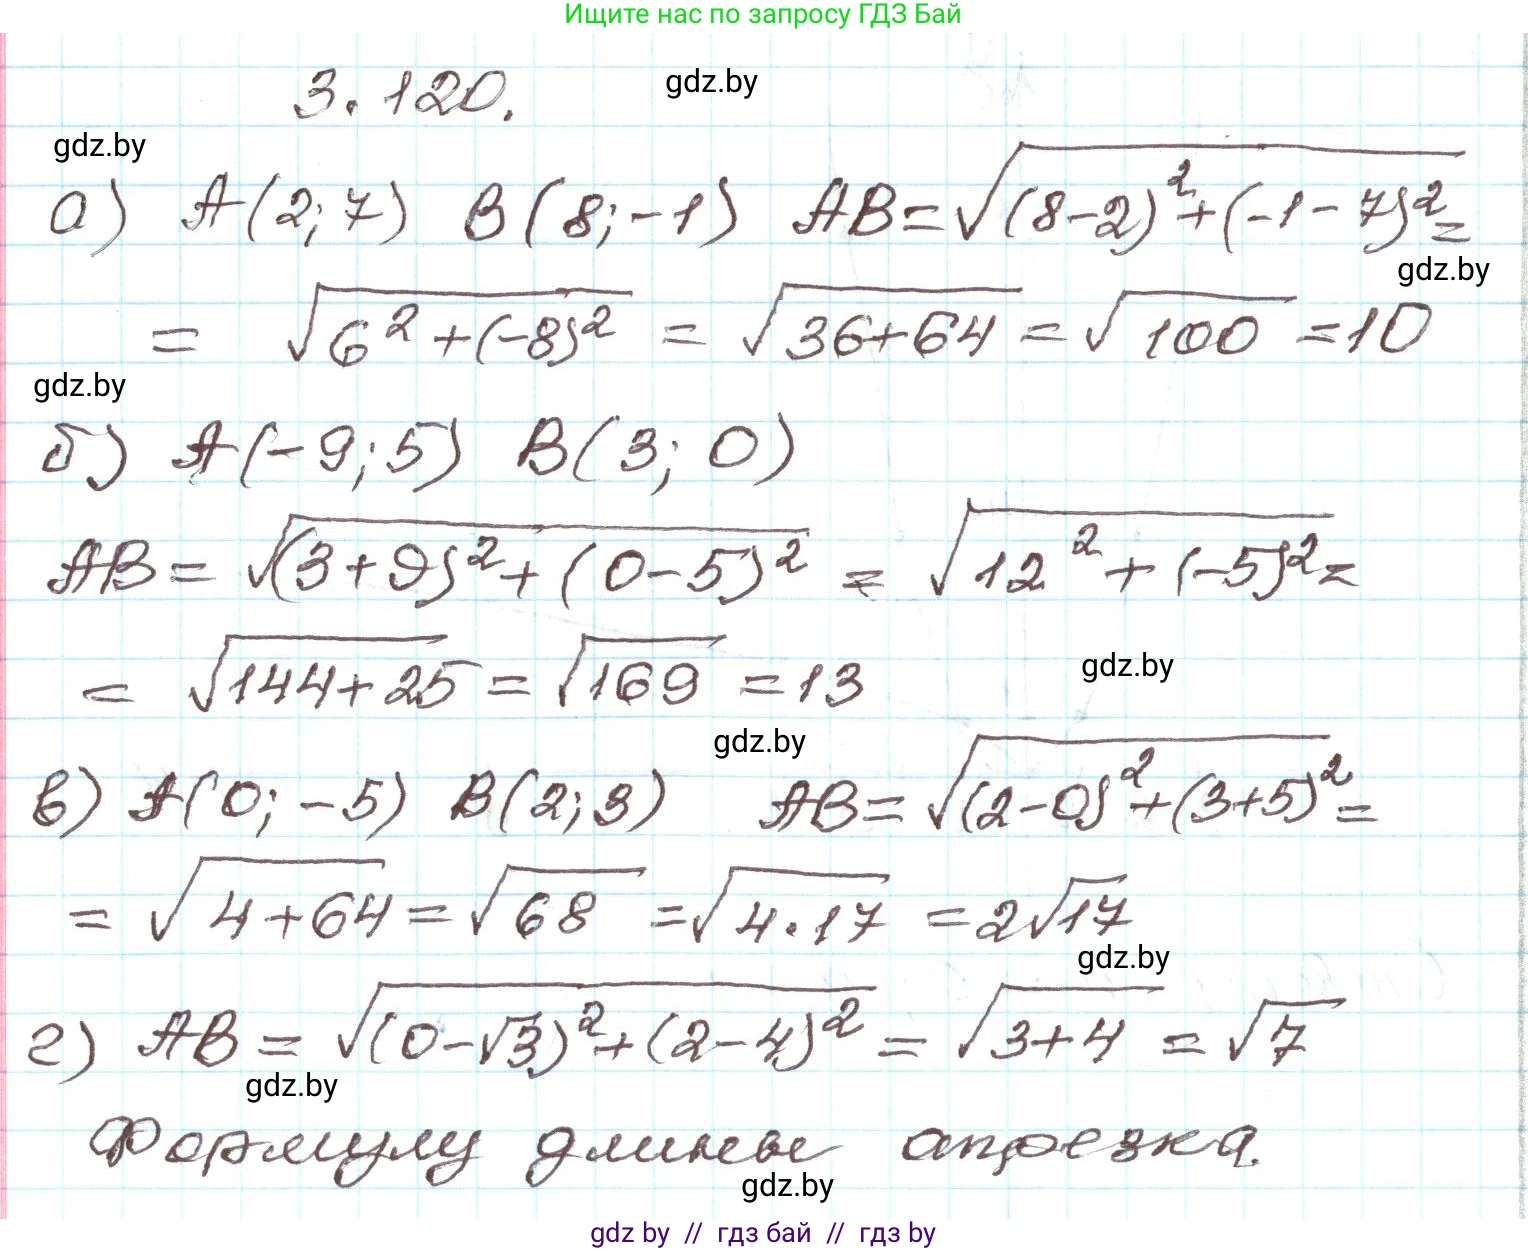 Ищите нас по запросу ГДЗ Бай
3.120.
gdz.by
gdz.by
а) A(2;7) B(8;-1) AB=√((8-2)²+(-1-7)²)=
gdz.by
= √(6²+(-8)²) = √(36+64) = √100 = 10
gdz.by
б) A(-9;5) B(3;0)
AB= √((3+9)²+(0-5)²) = √(12²+(-5)²)=
= √(144+25) = √169 = 13
gdz.by
gdz.by
в) A(0;-5) B(2;3) AB=√((2-0)²+(3+5)²)=
= √(4+64) = √68 = √(4·17) = 2√17
gdz.by
г) AB = √((0-√3)²+(2-4)²) = √(3+4) = √7
gdz.by
Формулу длины отрезка.
gdz.by
gdz by // гдз бай // гдз by